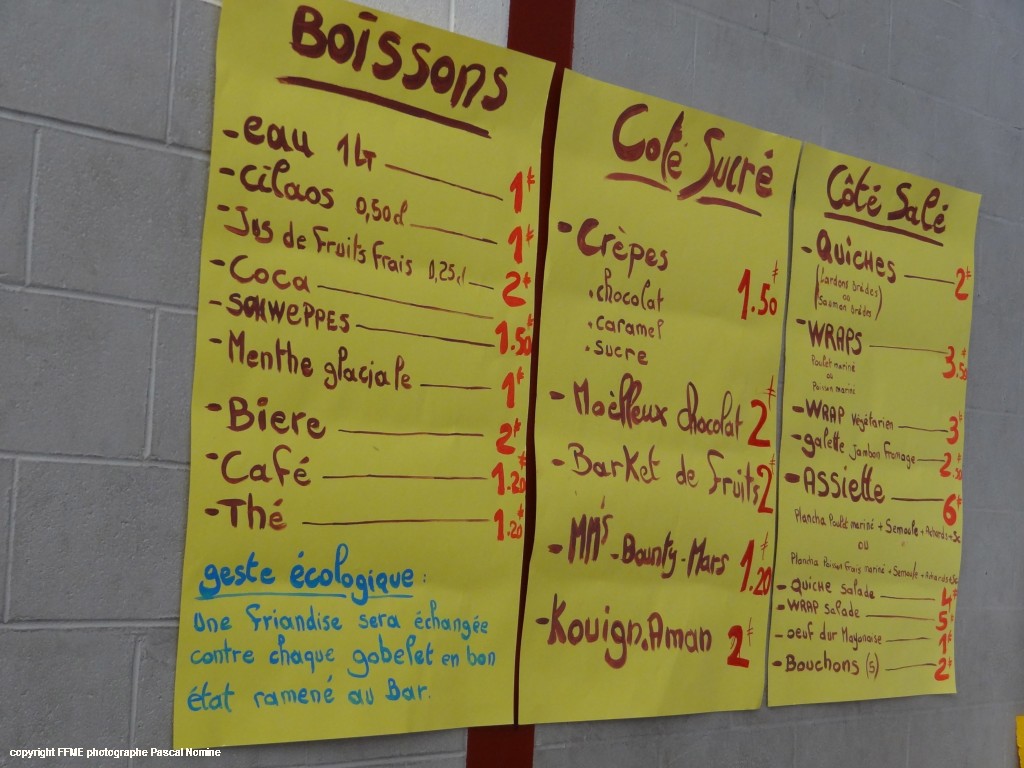 Boissons
- eau 1Lt 1€
- Cilaos 0,50cl 1€
- Jus de Fruits Frais 0,25cl 2€
- Coca
- SCHWEPPES 1.50€
- Menthe glaciale 1€
- Biere 2€
- Café 1.20€
- Thé 1.20€
geste écologique :
Une friandise sera échangée
contre chaque gobelet en bon
état ramené au Bar.
Coté Sucré
- Crèpes 1.50€
. chocolat
. caramel
. sucre
- Moëlleux chocolat 2€
- Barket de Fruits 2€
- MM's - Bounty - Mars 1.20€
- Kouign.Aman 2€
Côté Salé
- QUICHES 2€
(Lardons Brèdes
ou
Saumon Brèdes)
- WRAPS 3.50€
Poulet mariné
ou
Poisson mariné
- WRAP Végétarien 3€
- galette jambon fromage 2.50€
- Assiette 6€
Plancha Poulet mariné + Semoule + Achards + Sa
ou
Plancha Poisson Frais mariné + Semoule + Achards + Sa
- Quiche salade 4€
- WRAP Salade 5€
- oeuf dur Mayonaise 1€
- Bouchons (5) 2€
copyright FFME photographe Pascal Nomine